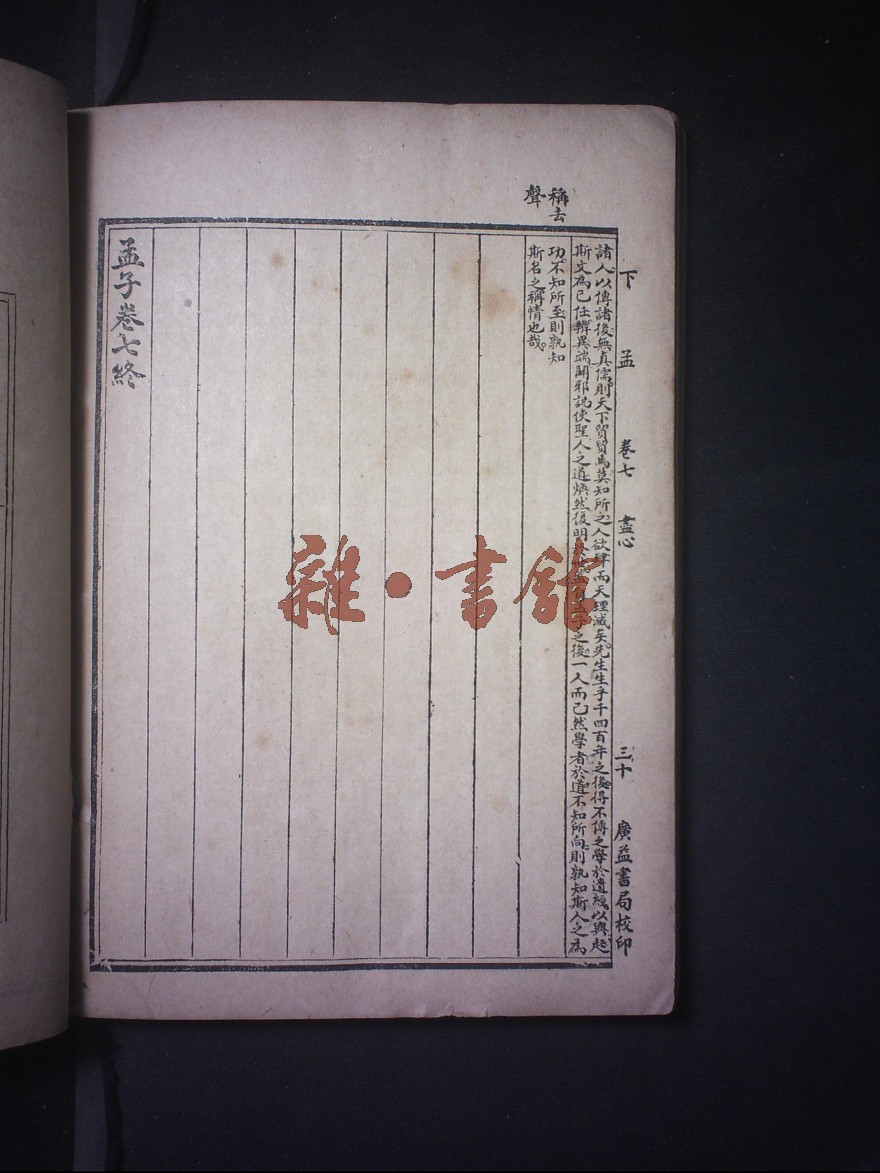 稱去
聲
下孟 卷七 盡心 三十 廣益書局校印
諸人以傳諸後無真儒則天下貿貿焉莫知所之人欲肆而天理滅矣先生生乎千四百年之後得不傳之學於遺經以興起
斯文為己任辨異端闢邪說使聖人之道煥然復明 之後一人而已然學者於道不知所向則孰知斯人之為
功不知所至則孰知
斯名之稱情也哉
孟子卷七終
雜·書館